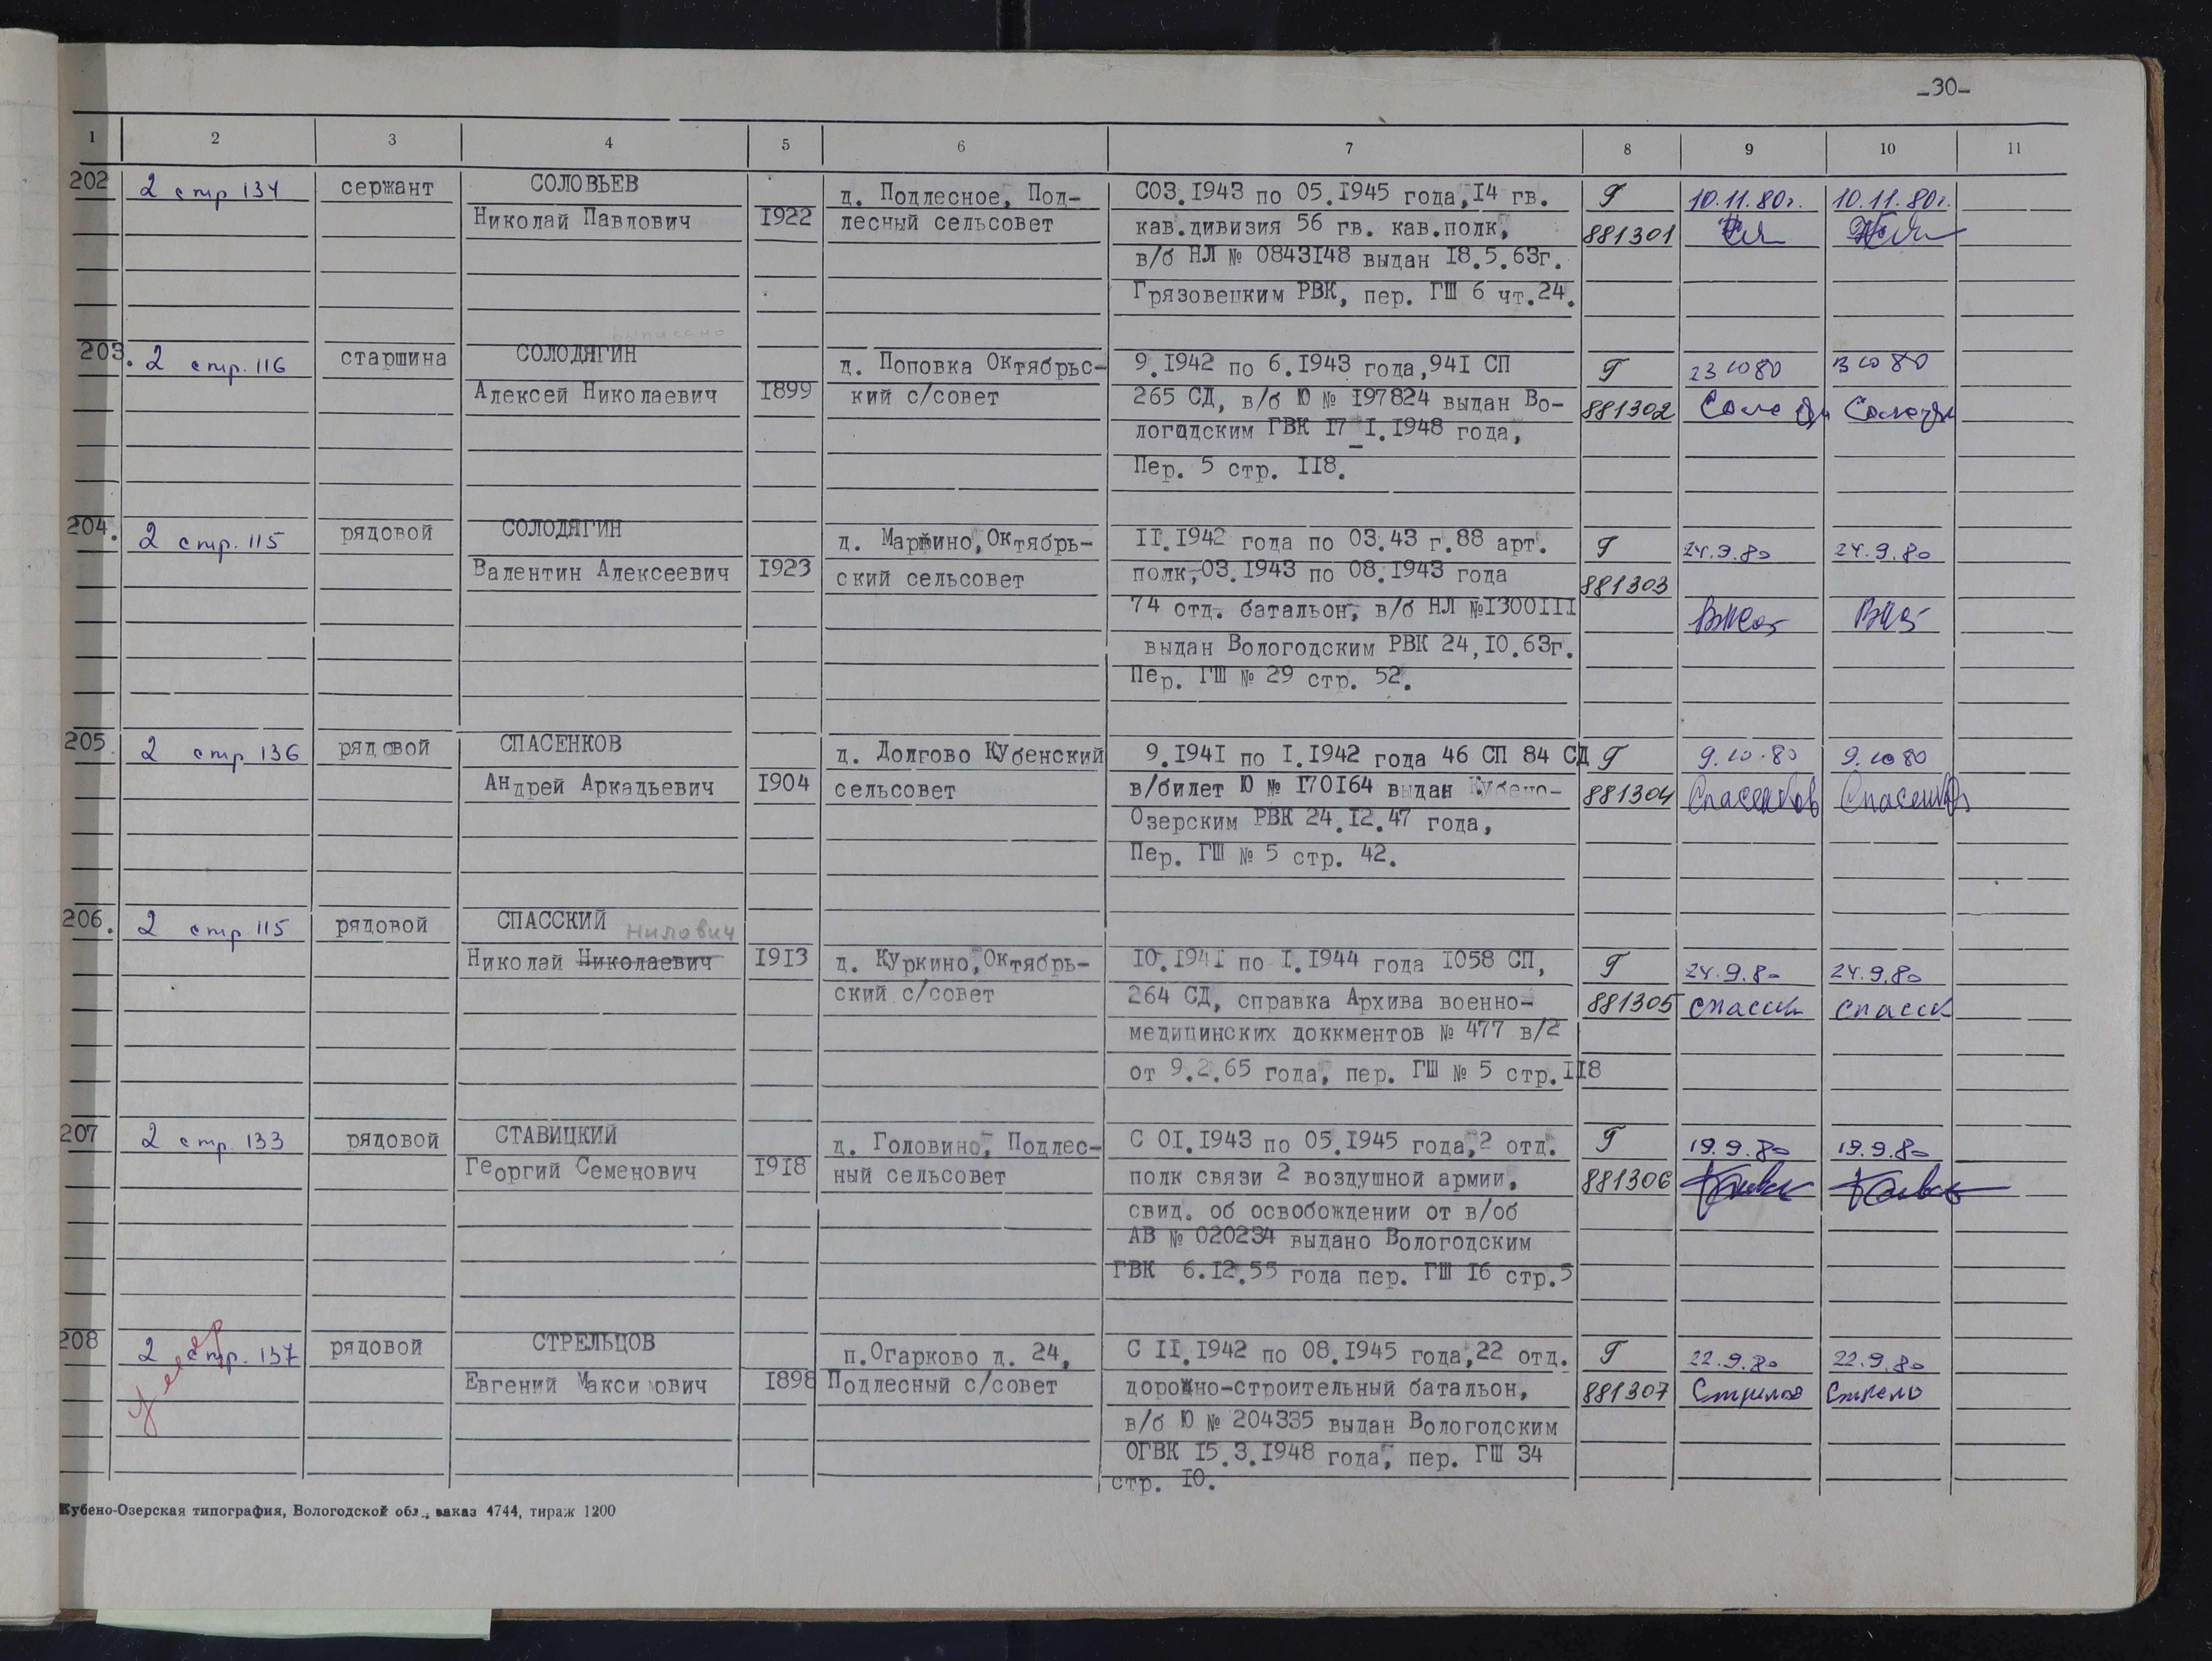 -30-
1 2 3 4 5 6 7 8 9 10 11
202 2 стр 134 сержант СОЛОВЬЕВ д. Подлесное, Под- С03.1943 по 05.1945 года,14 гв. Г 10.11.80г. 10.11.80г.
Николай Павлович 1922 лесный сельсовет кав.дивизия 56 гв. кав.полк, 881301
в/б НЛ № 0843148 выдан 18.5.63г.
Грязовецким РВК, пер. ГШ 6 чт.24.
выписано
203. 2 стр. 116 старшина СОЛОДЯГИН д. Поповка Октябрьс- 9.1942 по 6.1943 года,941 СП Г 23 10 80 23 10 80
Алексей Николаевич 1899 кий с/совет 265 СД, в/б Ю № 197824 выдан Во- 881302
логодским ГВК 17_1.1948 года,
Пер. 5 стр. 118.
204. 2 стр. 115 рядовой СОЛОДЯГИН д. Маршино,Октябрь- 11.1942 года по 03.43 г.88 арт. Г 24.9.80 24.9.80
Валентин Алексеевич 1923 ский сельсовет полк,03.1943 по 08.1943 года 881303
74 отд. батальон, в/б НЛ №1300111
выдан Вологодским РВК 24,10.63г.
Пер. ГШ № 29 стр. 52.
205. 2 стр 136 рядовой СПАСЕНКОВ д. Долгово Кубенский 9.1941 по 1.1942 года 46 СП 84 СД Г 9.10.80 9.10 80
Андрей Аркадьевич 1904 сельсовет в/билет Ю № 170164 выдан Кубено- 881304 Спасенков Спасенков
Озерским РВК 24.12.47 года,
Пер. ГШ № 5 стр. 42.
206. 2 стр 115 рядовой СПАССКИЙ Нилович
Николай Николаевич 1913 д. Куркино,Октябрь- 10.1941 по 1.1944 года 1058 СП, Г 24.9.80 24.9.80
ский с/совет 264 СД, справка Архива военно- 881305 Спасск Спасск
медицинских доккментов № 477 в/2
от 9.2.65 года, пер. ГШ № 5 стр.118
207 2 стр. 133 рядовой СТАВИЦКИЙ д. Головино, Подлес- С 01.1943 по 05.1945 года,2 отд. Г 19.9.80 19.9.80
Георгий Семенович 1918 ный сельсовет полк связи 2 воздушной армии, 881306
свид. об освобождении от в/об
АВ № 020234 выдано Вологодским
ГВК 6.12.55 года пер. ГШ 16 стр.5
208 2 стр. 137 рядовой СТРЕЛЬЦОВ п.Огарково д. 24, С 11.1942 по 08.1945 года,22 отд. Г 22.9.80 22.9.80
Евгений Максимович 1898 Подлесный с/совет дорожно-строительный батальон, 881307
в/б Ю № 204335 выдан Вологодским
ОГВК 15.3.1948 года, пер. ГШ 34
стр. 10.
Кубено-Озерская типография, Вологодской обл., заказ 4744, тираж 1200